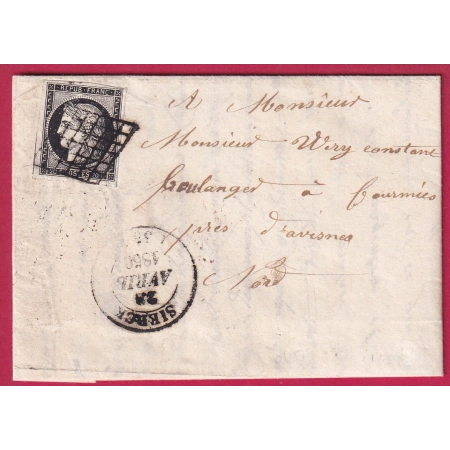 REPUB. FRANC.
A Monsieur
Monsieur Wéry constant
boulanger à fourmies
près d'avesnes
Nord
SIERCK
28
AVRIL
1850